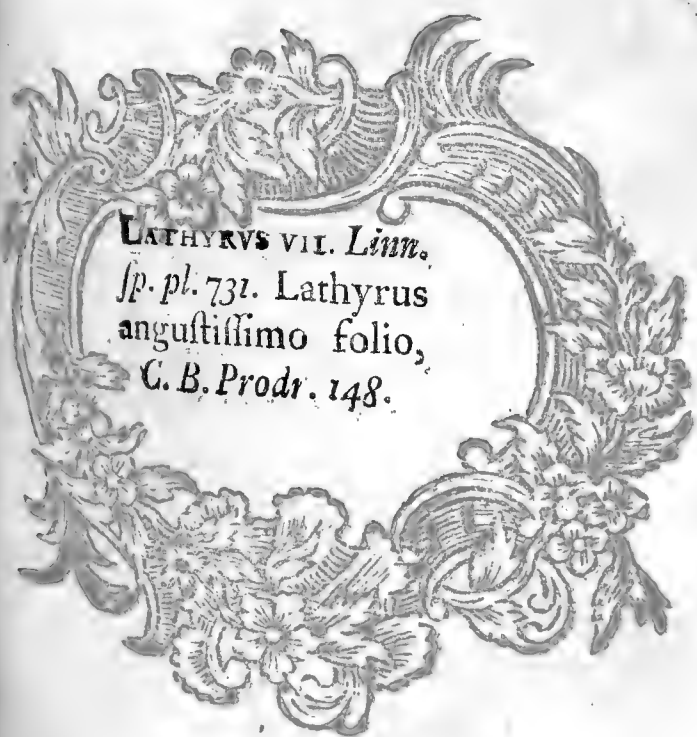 LATHYRVS VII. Linn.
ſp. pl. 731. Lathyrus
anguſtiſſimo folio,
C. B. Prodr. 148.